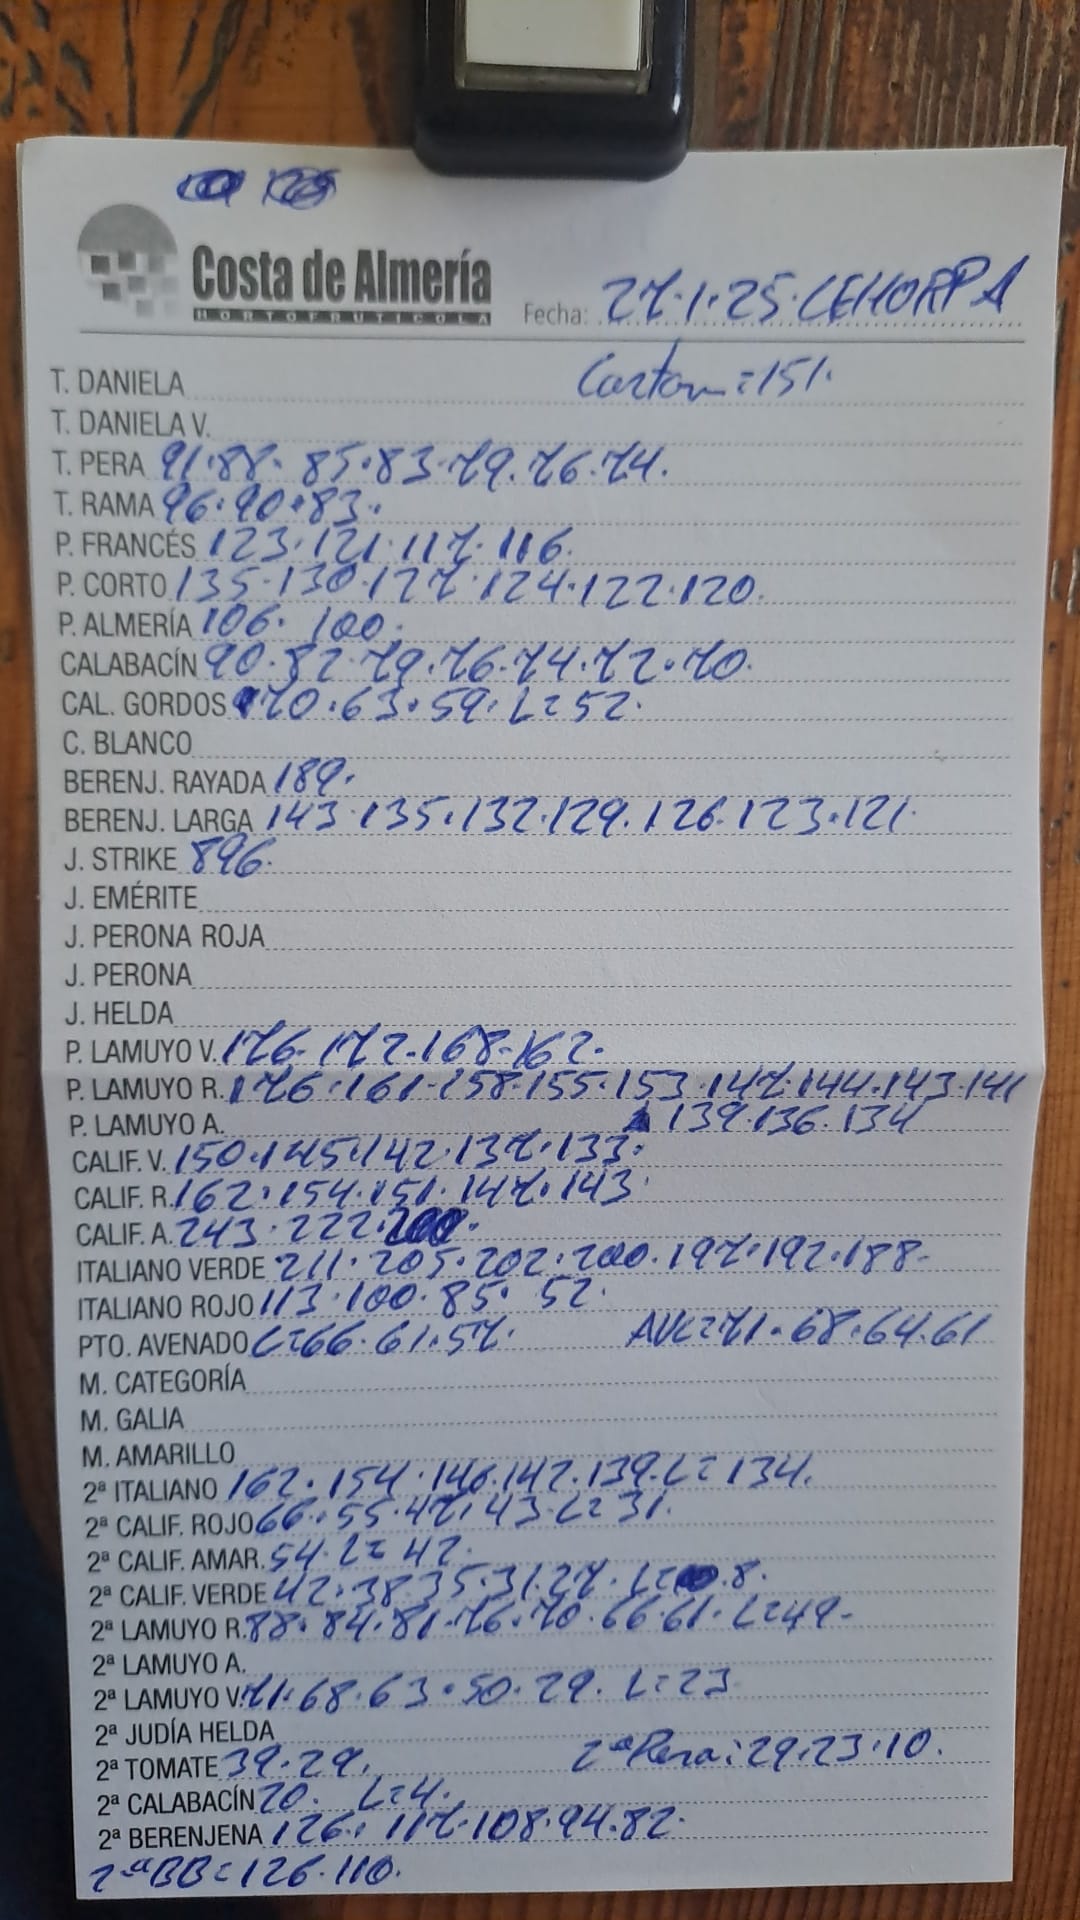 Costa de Almería
HORTOFRUTICOLA
Fecha: 27.1.25. CEHORPA
T. DANIELA Carton=151.
T. DANIELA V.
T. PERA 91.88.85.83.79.76.74.
T. RAMA 96.90.83.
P. FRANCÉS 123.121.117.116.
P. CORTO 135.130.127.124.122.120.
P. ALMERÍA 106.100.
CALABACÍN 90.82.79.76.74.72.70.
CAL. GORDOS 70.63.59.L=52.
C. BLANCO
BERENJ. RAYADA 189.
BERENJ. LARGA 143.135.132.129.126.123.121.
J. STRIKE 896.
J. EMÉRITE
J. PERONA ROJA
J. PERONA
J. HELDA
P. LAMUYO V. 176.172.168.162.
P. LAMUYO R. 176.161.158.155.153.147.144.143.141
P. LAMUYO A. 139.136.134
CALIF. V. 150.145.142.137.133.
CALIF. R. 162.154.151.147.143.
CALIF. A. 243.222.200.
ITALIANO VERDE 211.205.202.200.197.192.188-
ITALIANO ROJO 113.100.85.52.
PTO. AVENADO C=66.61.57. AVC=71.68.64.61
M. CATEGORÍA
M. GALIA
M. AMARILLO
2ª ITALIANO 162.154.146.142.139.L=134.
2ª CALIF. ROJO 66.55.47.43.L=31.
2ª CALIF. AMAR. 54.L=42.
2ª CALIF. VERDE 42.38.35.31.27.L= .8.
2ª LAMUYO R. 88.84.81.76.70.66.61.L=49-
2ª LAMUYO A.
2ª LAMUYO V. 71.68.63.50.29.L=23
2ª JUDÍA HELDA
2ª TOMATE 39.29. 2ªPera:29.23.10.
2ª CALABACÍN 20. L=4.
2ª BERENJENA 126.117.108.94.82.
2ªBB=126.110.